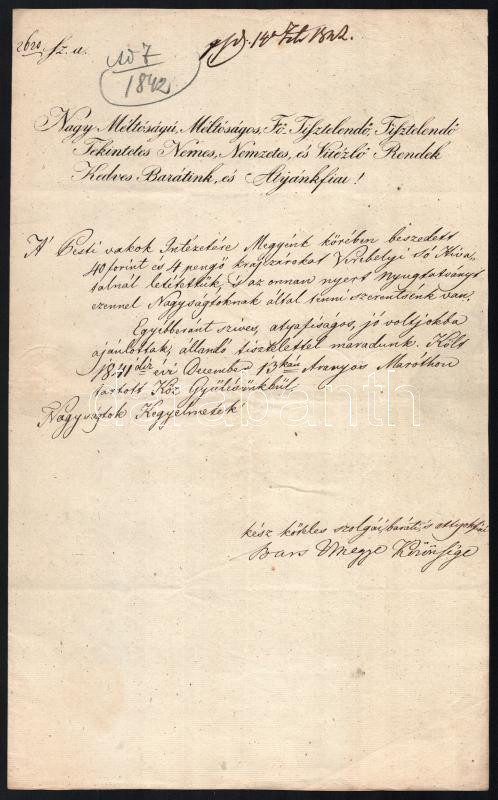 2620/sz. a.
No 7
1842
14a Feb 1842.
Nagy Méltóságú, Méltóságos, Fő Tisztelendő, Tisztelendő
Tekintetes Nemes, Nemzetes, és Vitézlő Rendek
Kedves Barátink, és Atyánkfiai!
A' Pesti vakok Intézetére Megyénk körében beszedett
40 forint és 4 pengő krajczárokat Verebélyi Só Hiva-
talnál letétettük, 's az onnan nyert Nyugtatványt
ezennel Nagyságtoknak által tenni szerentsénk van.
Egyébberánt szives, atyafiságos, jó voltjokba
ajánlottak, állandó tisztelettel maradunk. Költ
1841dik évi December 13kán Aranyos Maróthon
tartott Köz Gyűlésünkbül.
Nagyságtok Kegyelmetek
kész köteles szolgái, baráti, 's attyokfiai
Bars Vmegye Közönsége
darabanth